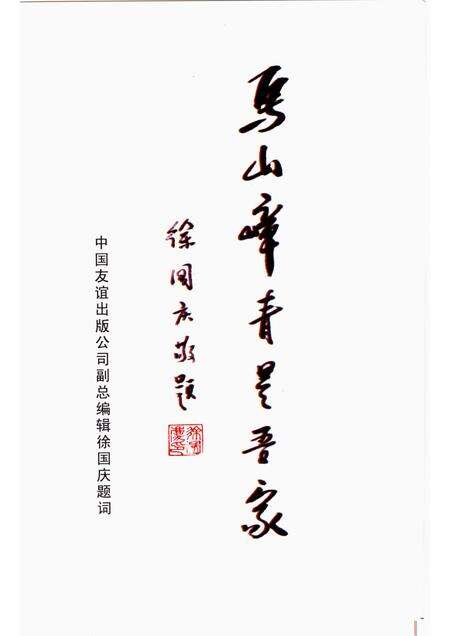 山嶂青是吾家
徐国庆敬题
中国友谊出版公司副总编辑徐国庆题词